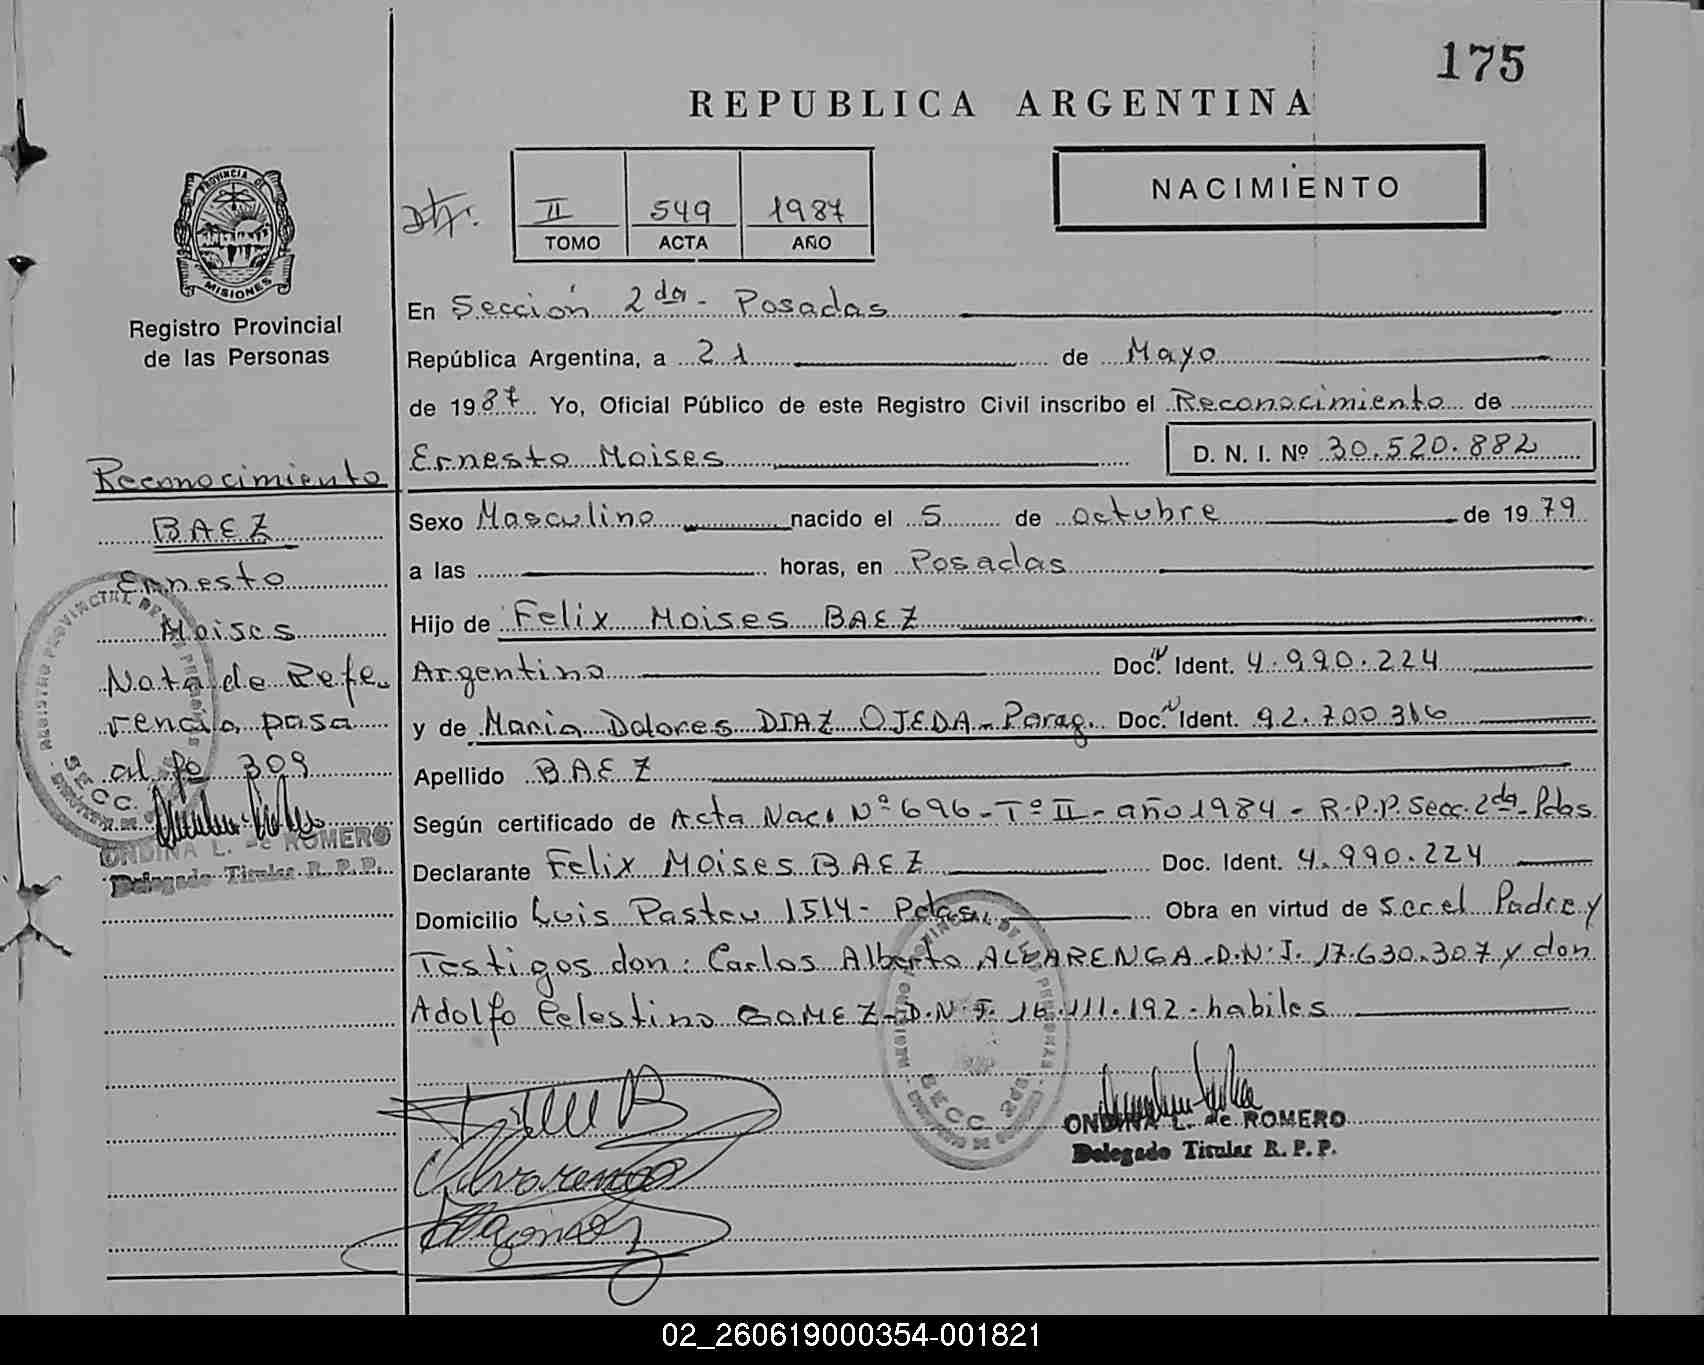 175
REPUBLICA ARGENTINA
NACIMIENTO
II 549 1987
TOMO ACTA AÑO
PROVINCIA DE
MISIONES
Registro Provincial
de las Personas
En Sección 2da - Posadas
República Argentina, a 21 de Mayo
de 1987 Yo, Oficial Público de este Registro Civil inscribo el Reconocimiento de
Ernesto Moises D. N. I. Nº 30.520.882
Sexo Masculino nacido el 5 de octubre de 1979
a las horas, en Posadas
Hijo de Felix Moises BAEZ
Argentino Doc. Ident. 4.990.224
y de Maria Dolores DIAZ OJEDA - Parag. Doc. Ident. 92.700.316
Apellido BAEZ
Según certificado de Acta Nac. Nº 696 - Tº II - año 1984 - R.P.P. Secc. 2da - Pdas
Declarante Felix Moises BAEZ Doc. Ident. 4.990.224
Domicilio Luis Pasteu 1514 - Pdas Obra en virtud de ser el Padre y
Testigos don: Carlos Alberto ALBARENGA - D.N.I. 17.630.307 y don
Adolfo Celestino GOMEZ - D.N.I. 16.111.192 - habiles
Reconocimiento
BAEZ
Ernesto
Moises
Nota de Refe
rencia pasa
al fº 309
ONDINA L. de ROMERO
Delegado Titular R.P.P.
REGISTRO PROVINCIAL DE LAS PERSONAS
SECC. 2da
ONDINA L. de ROMERO
Delegado Titular R. P. P.
02_260619000354-001821